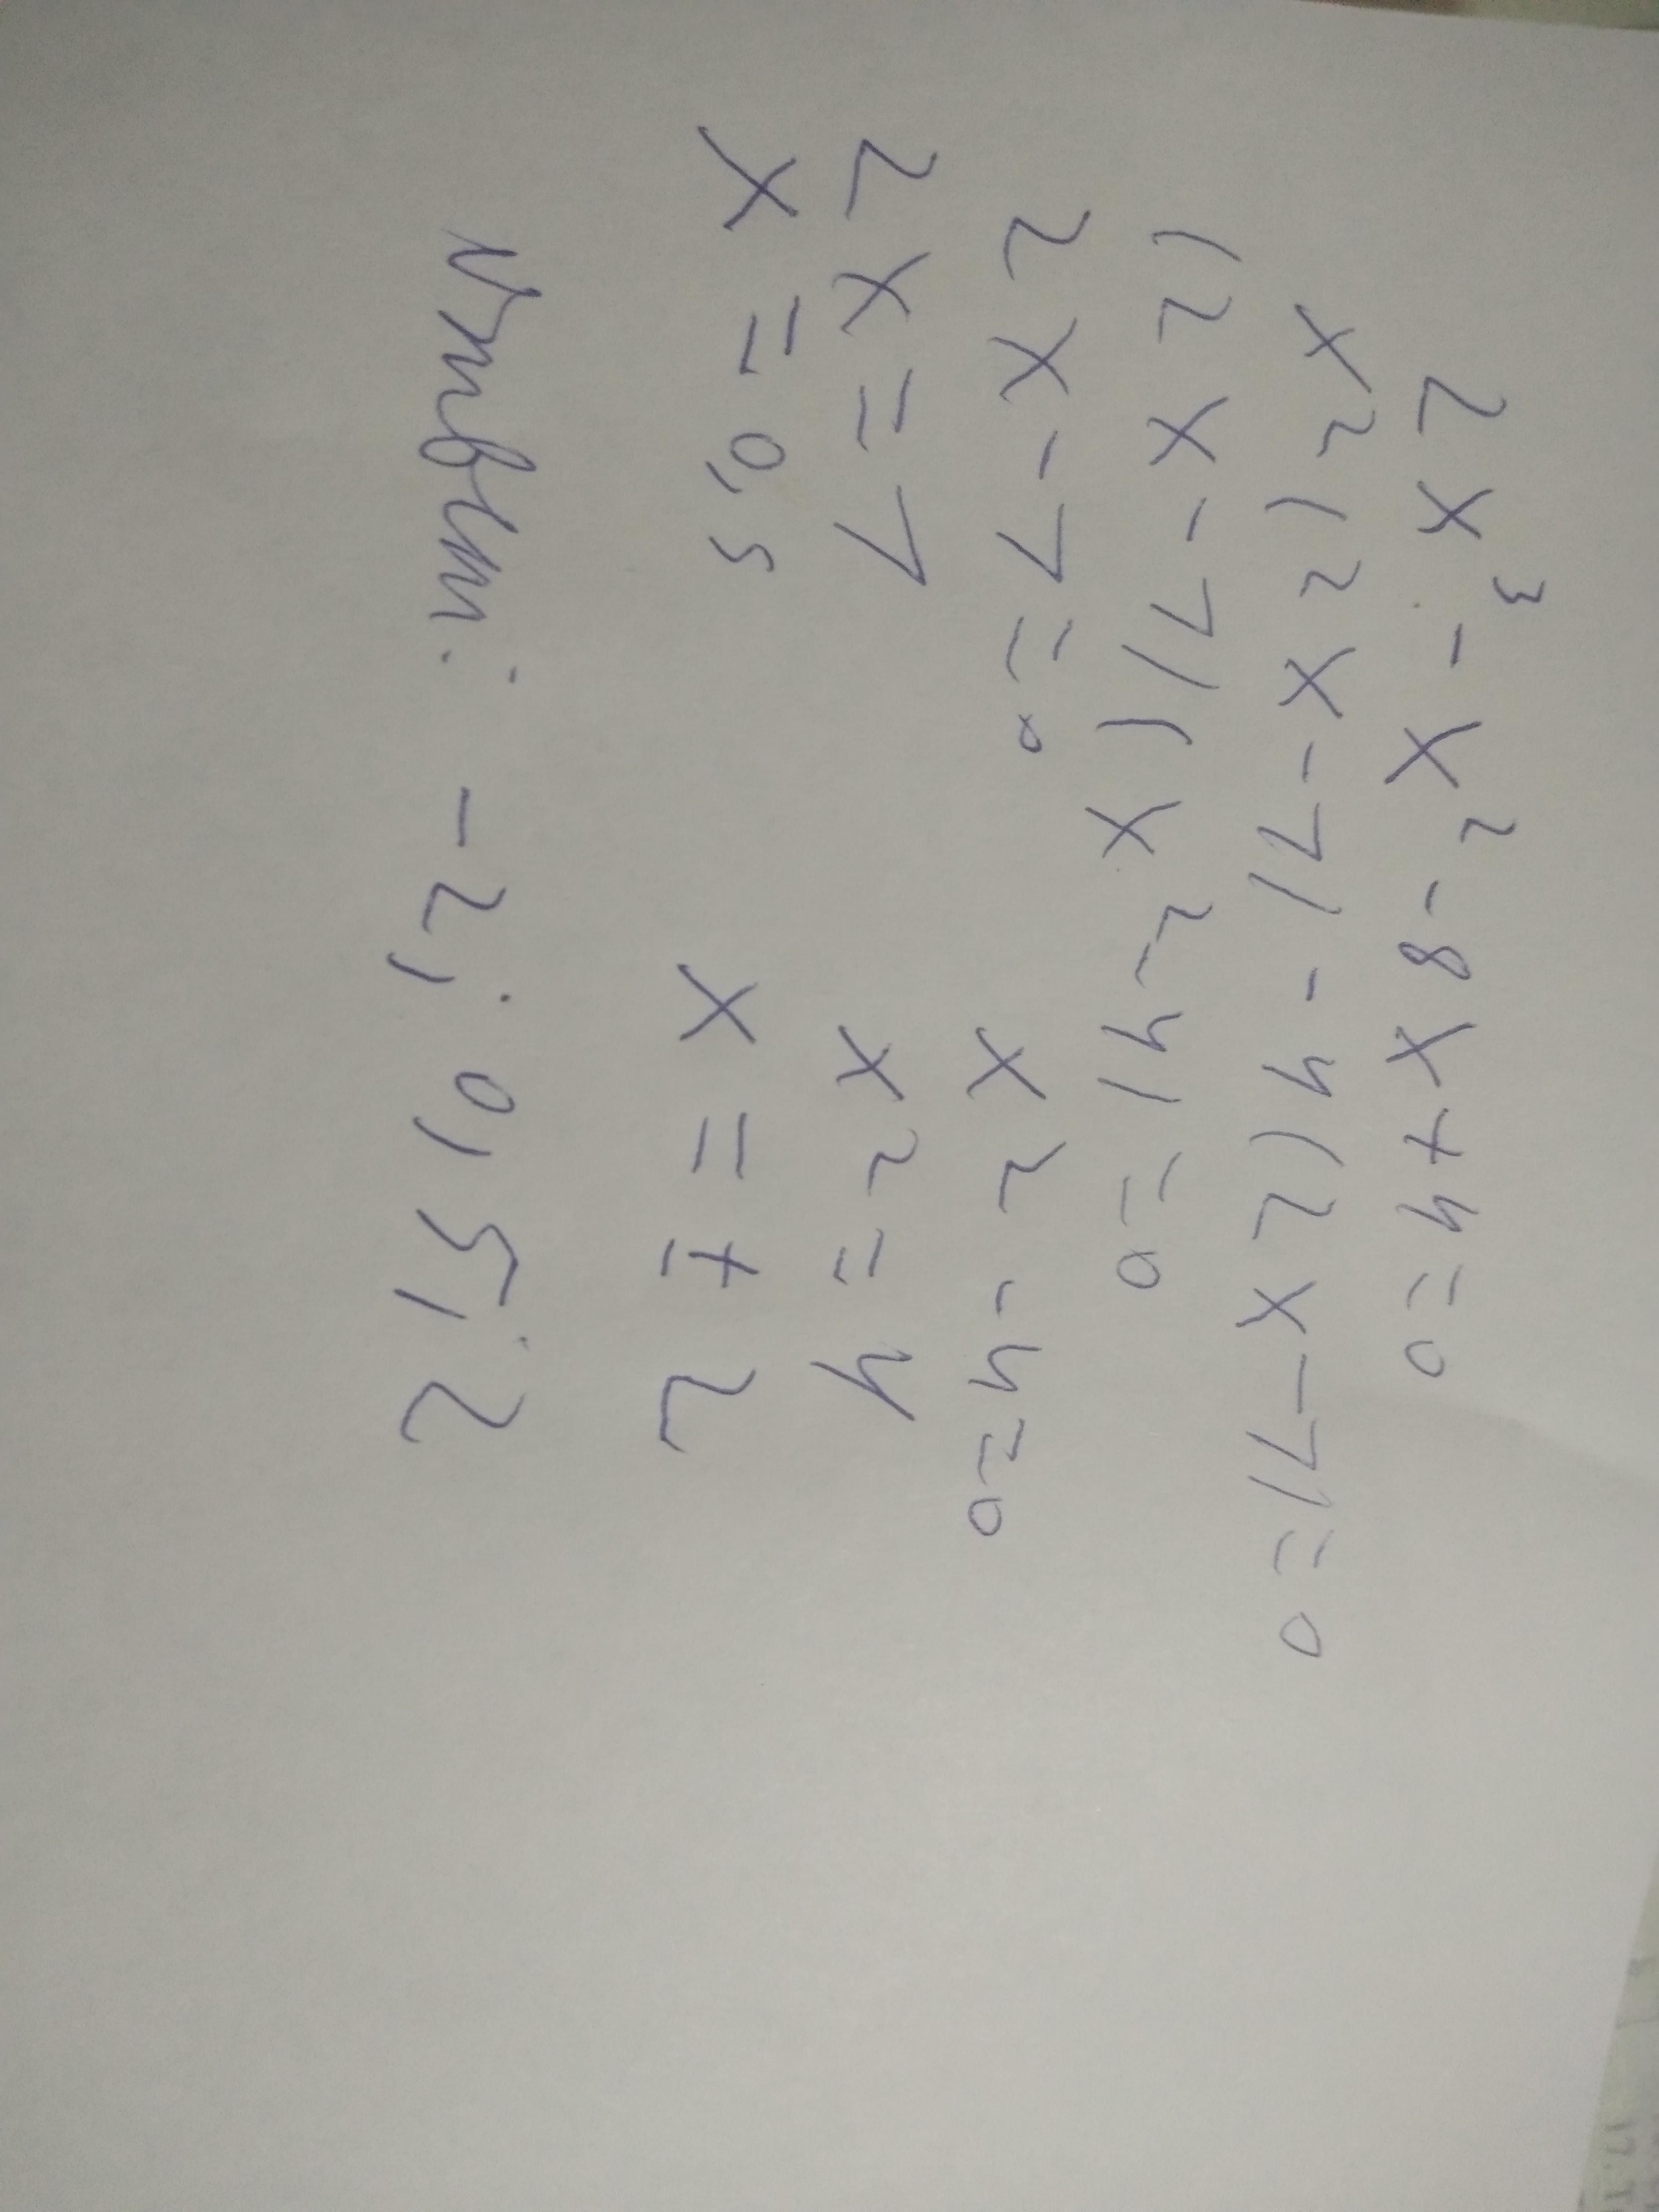 2x³ - x² - 8x + 4 = 0
x²(2x - 1) - 4(2x - 1) = 0
(2x - 1)(x² - 4) = 0
2x - 1 = 0    x² - 4 = 0
2x = 1    x² = 4
x = 0,5    x = ±2
Ответ: -2; 0,5; 2